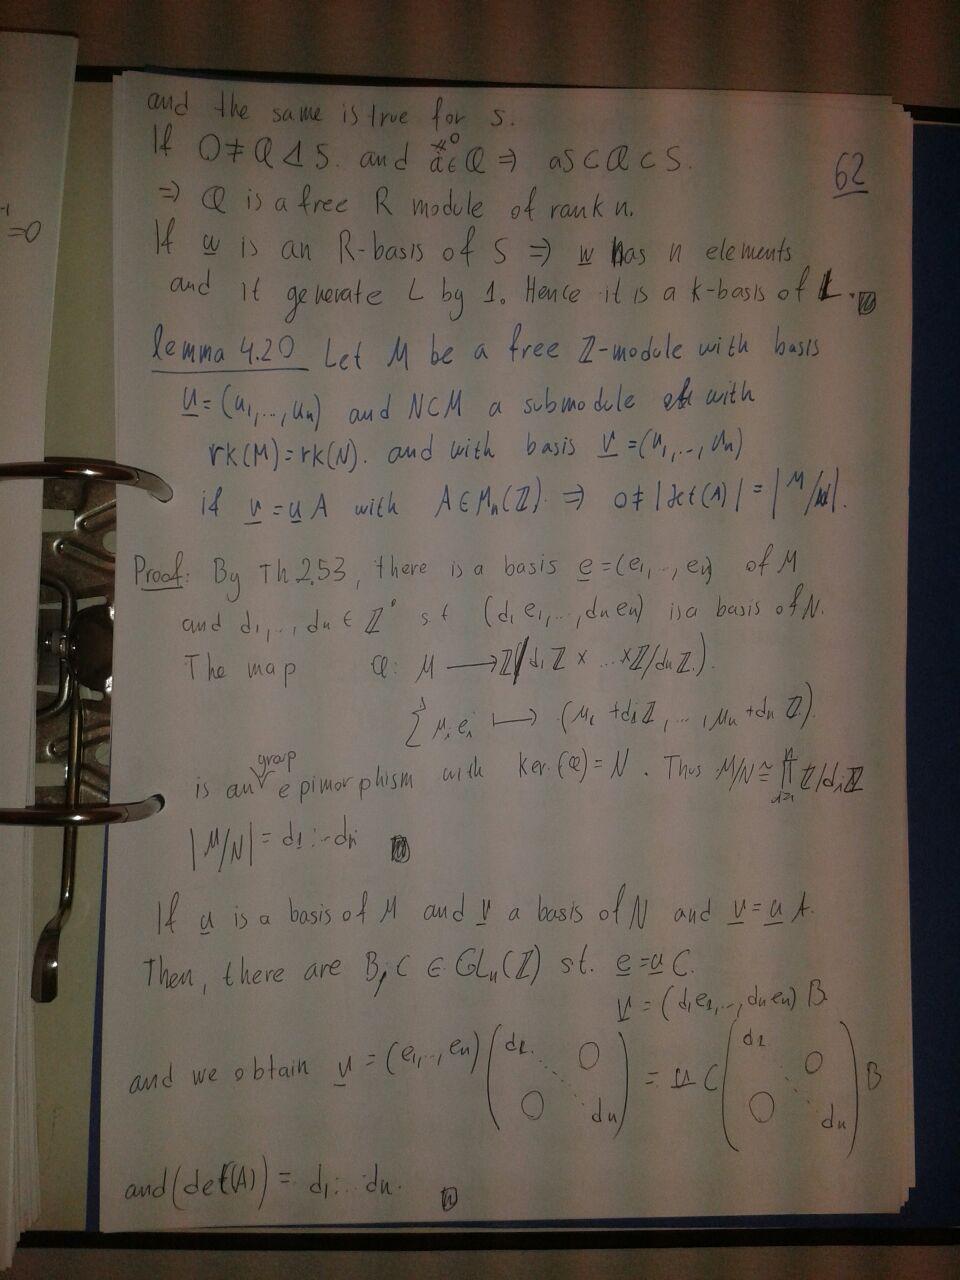 and the same is true for S.
If 0 ≠ Q ⊲ S. and 0 ≠ a ∈ Q ⇒ aS ⊂ Q ⊂ S.
62
-1
=0
⇒ Q is a free R module of rank n.
If w is an R-basis of S ⇒ w has n elements
and it generate L by 1. Hence it is a k-basis of L.
lemma 4.20 Let M be a free ℤ-module with basis
u = (u1,..., un) and N⊂M a submodule with
rk(M) = rk(N). and with basis v = (u1,..., un)
if v = u A with A ∈ Mn(ℤ) ⇒ 0 ≠ |det(A)| = |M/N|.
Proof: By Th 2.53, there is a basis e = (e1,..., en) of M
and d1,..., dn ∈ ℤ° s.t (d1 e1,..., dn en) is a basis of N.
The map φ: M ⟶ ℤ/d1ℤ × ... × ℤ/dnℤ).
∑ μi ei ⟼ (μ1 + d1ℤ,..., μn + dnℤ).
is an group epimorphism with ker(φ) = N. Thus M/N ≅ ∏ⁿᵢ₌₁ ℤ/diℤ
|M/N| = d1...dn
If u is a basis of M and v a basis of N and v = u A.
Then, there are B, C ∈ GLn(ℤ) st. e = u C.
v = (d1e1,..., dnen) B
and we obtain v = (e1,..., en) (d1 0 ⋱ 0 dn) = u C (d1 0 ⋱ 0 dn) B
and (det(A)) = d1...dn.